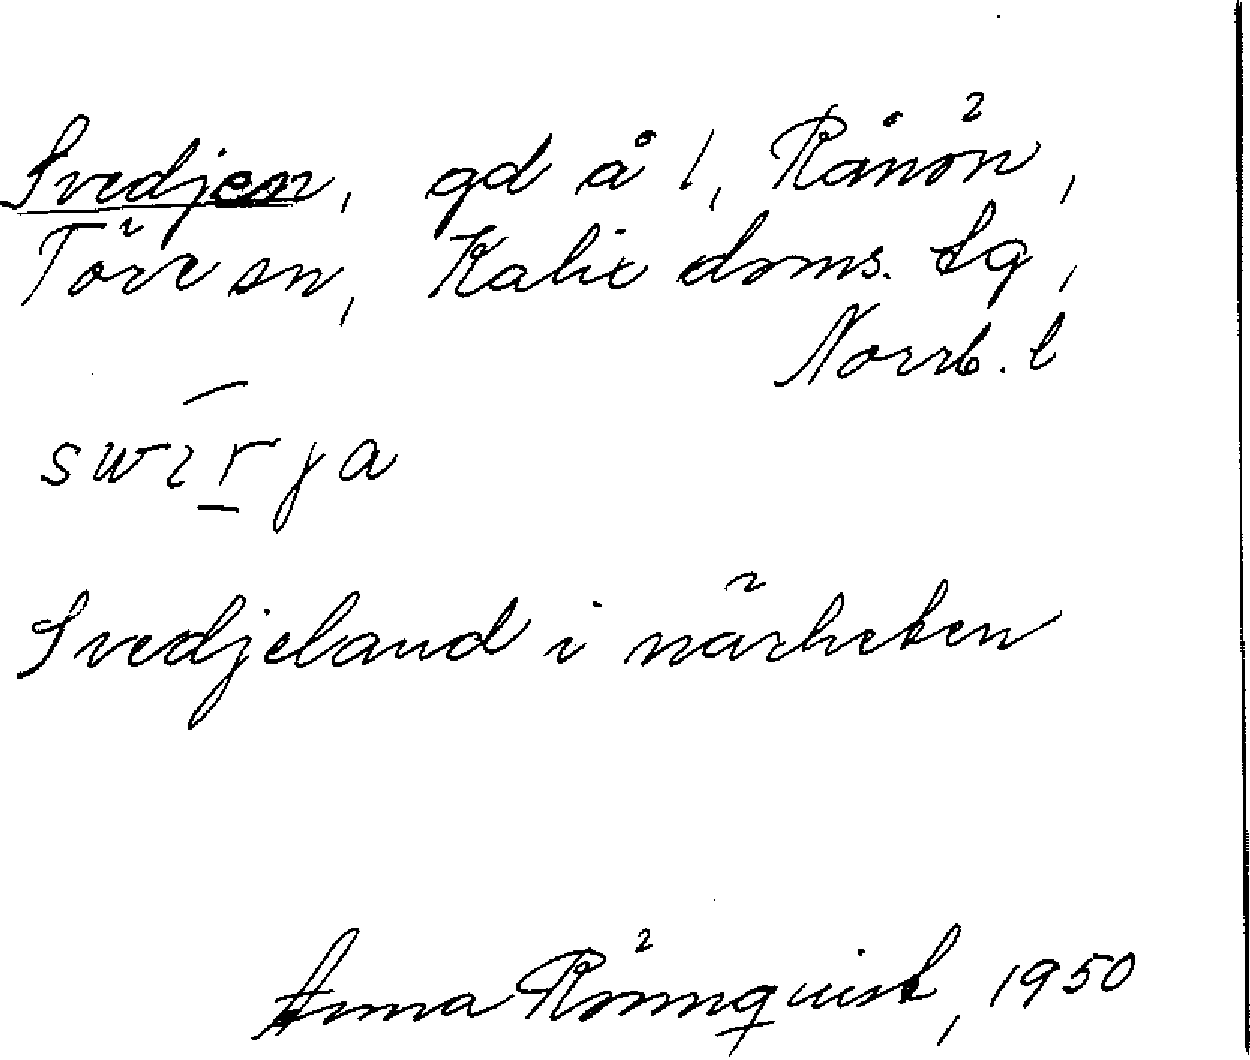 Svedjen, gd å 1, Rånön,
Töre sn, Kalix doms. tg,
Norrb. l
swirja
Svedjeland i närheten
Anna Rönnquist, 1950